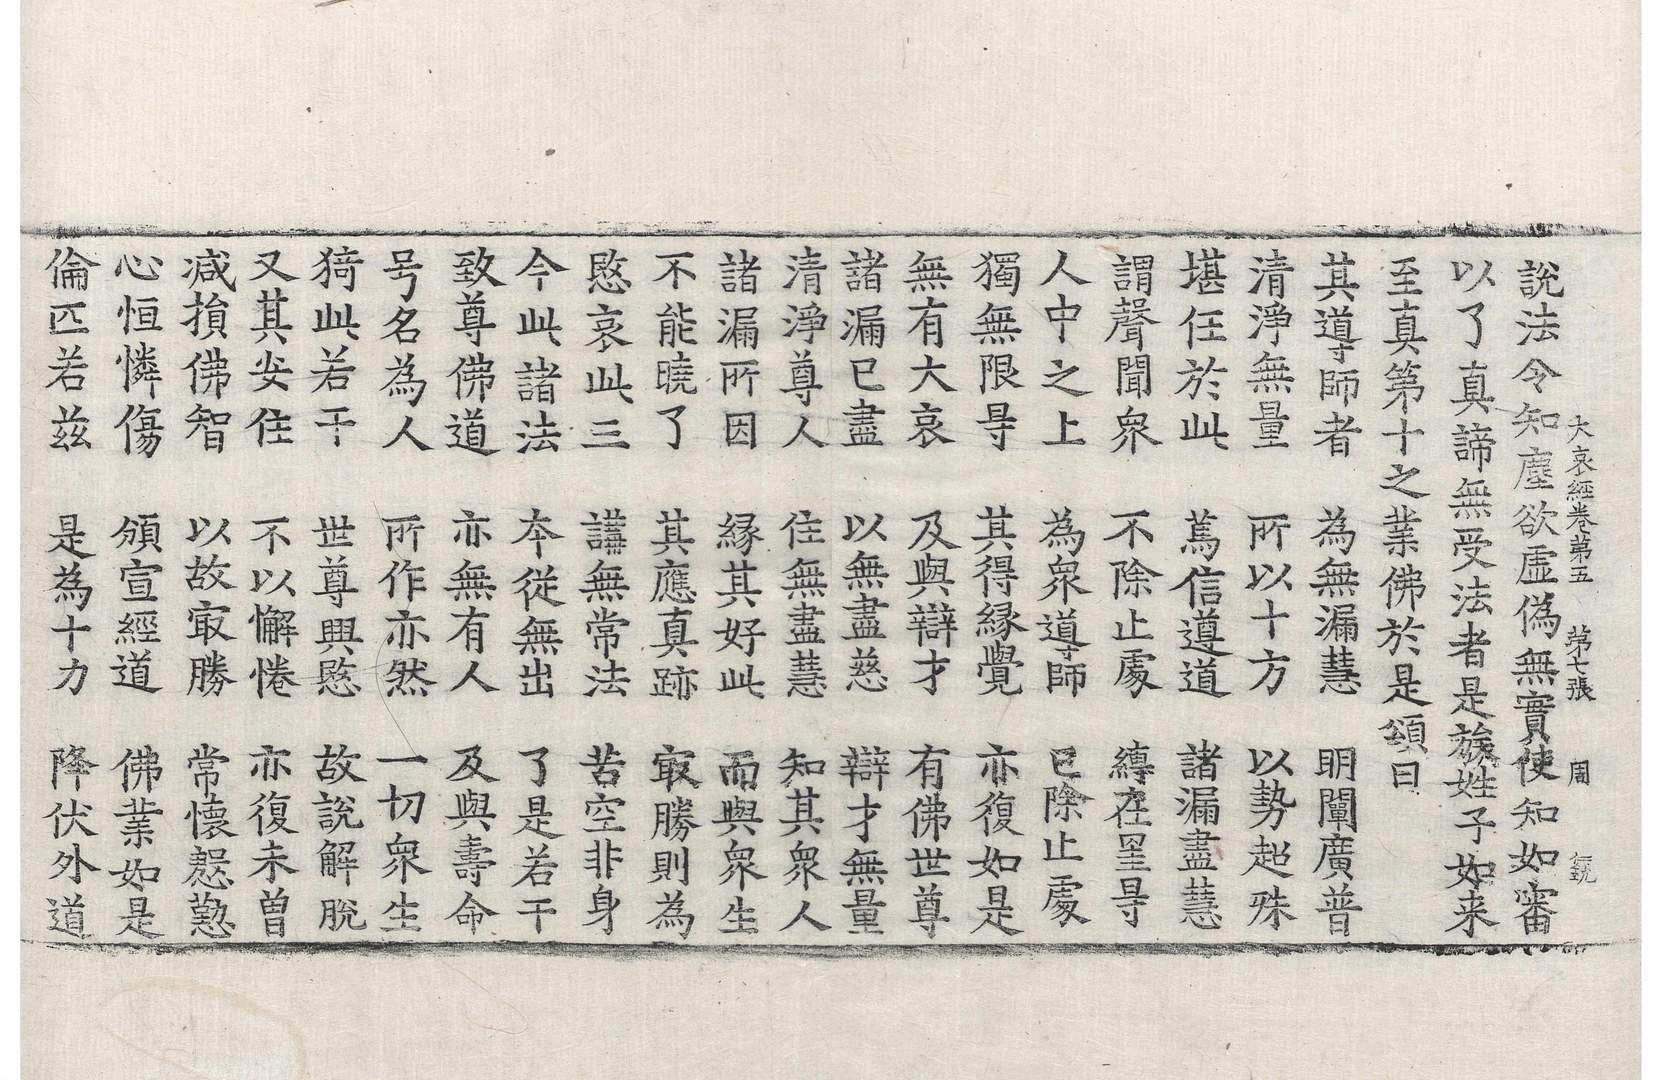 大哀經卷第五　第七張　周
說法令知塵欲虛偽無實使知如審
以了真諦無受法者是族姓子如来
至真第十之業佛於是頌曰
其導師者　為無漏慧　明闡廣普
清淨無量　所以十方　以勢超殊
堪任於此　篤信導道　諸漏盡慧
謂聲聞衆　不除止處　縛在罣㝵
人中之上　為衆導師　已除止處
獨無限㝵　其得緣覺　亦復如是
無有大哀　及與辯才　有佛世尊
諸漏已盡　以無盡慈　辯才無量
清淨尊人　住無盡慧　知其衆人
諸漏所因　緣其好此　而與衆生
不能曉了　其應真跡　㝡勝則為
愍哀此三　講無常法　苦空非身
今此諸法　本從無出　了是若干
致尊佛道　亦無有人　及與壽命
号名為人　所作亦然　一切衆生
猗此若干　世尊興愍　故說解脫
又其安住　不以懈惓　亦復未曾
减損佛智　以故㝡勝　常懷慇懃
心恒憐傷　頒宣經道　佛業如是
倫匹若茲　是為十力　降伏外道